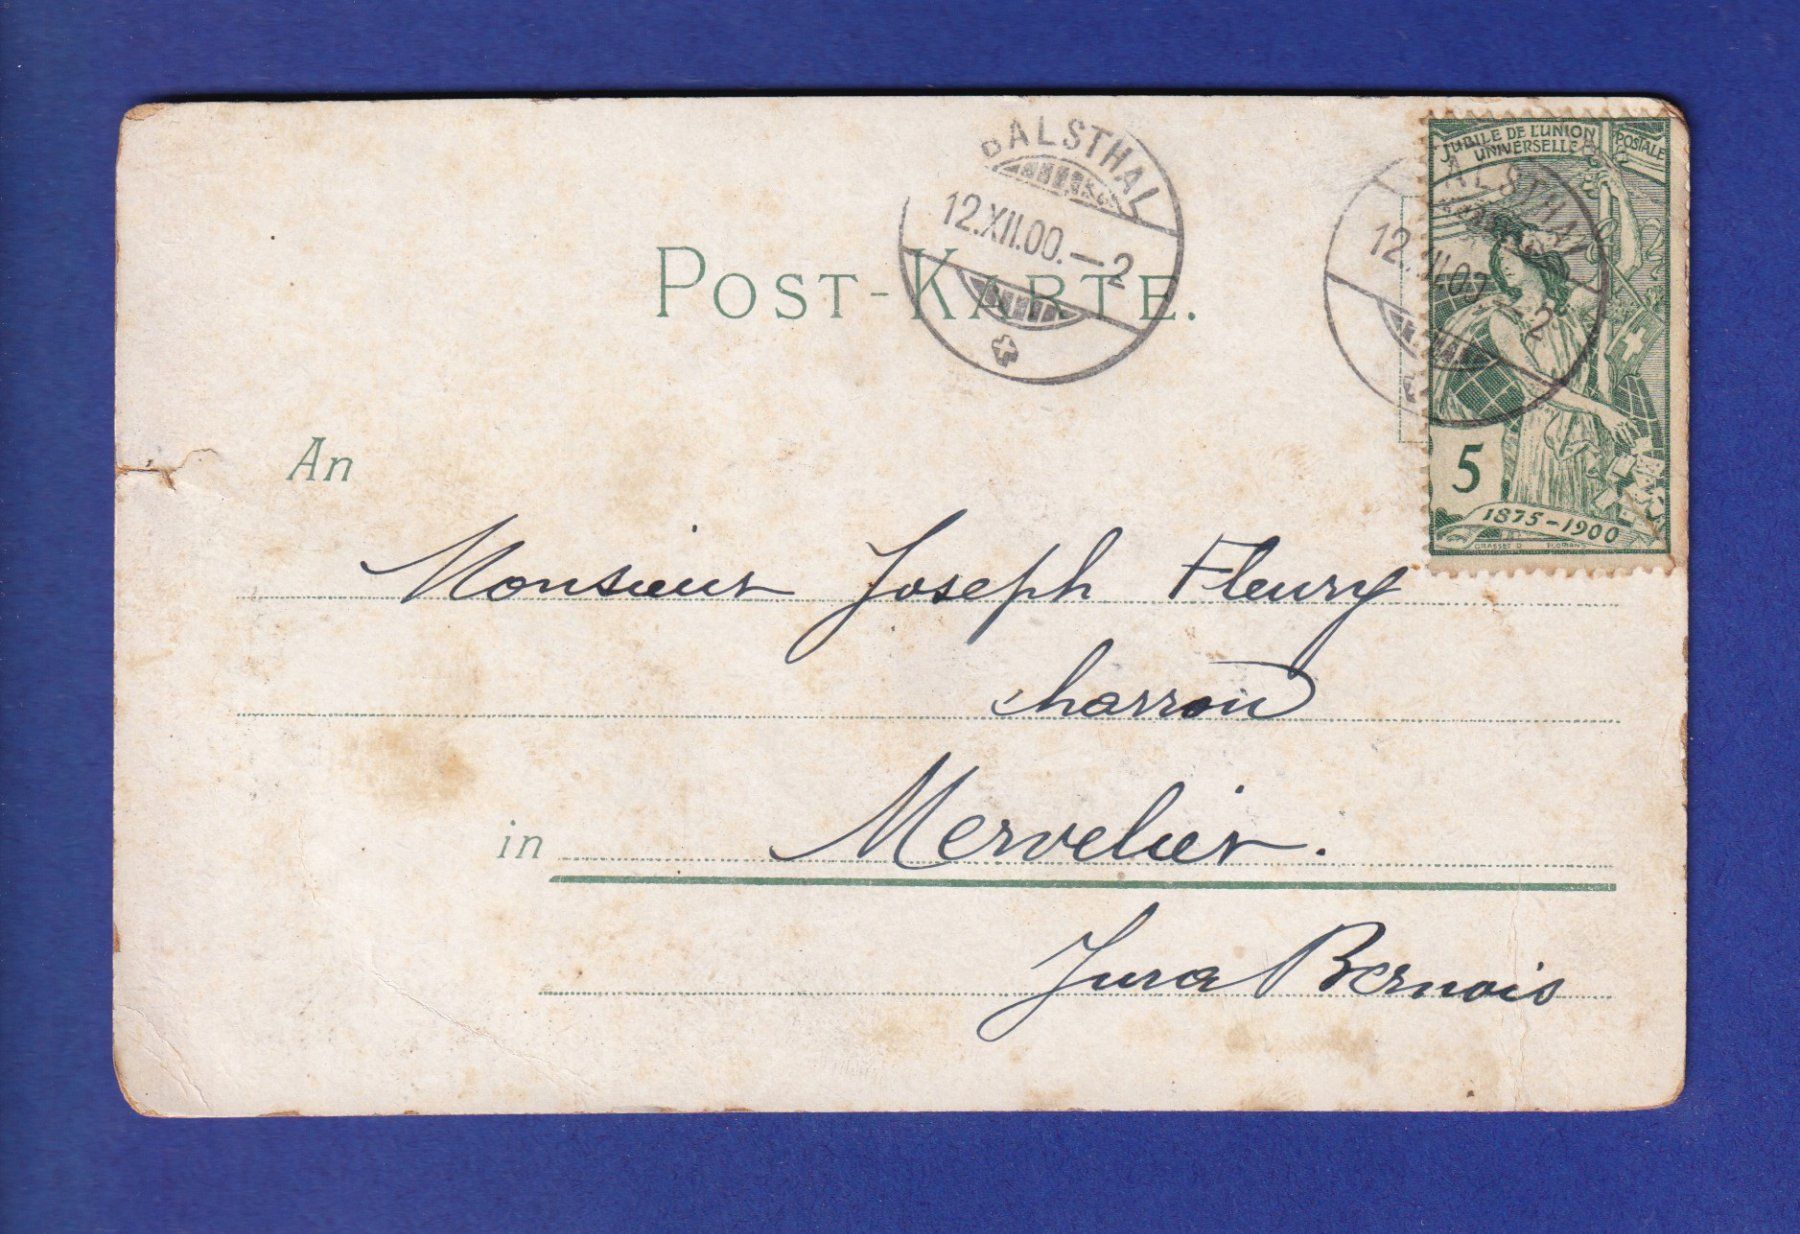 BALSTHAL
12.XII.00.-2
POST-KARTE.
JUBILÉ DE L'UNION POSTALE
UNIVERSELLE
ALSTHAL
12. II.00 -2
5
1875-1900
GRASSET D
An
Monsieur Joseph Fleury
charron
in Mervelier.
Jura Bernois